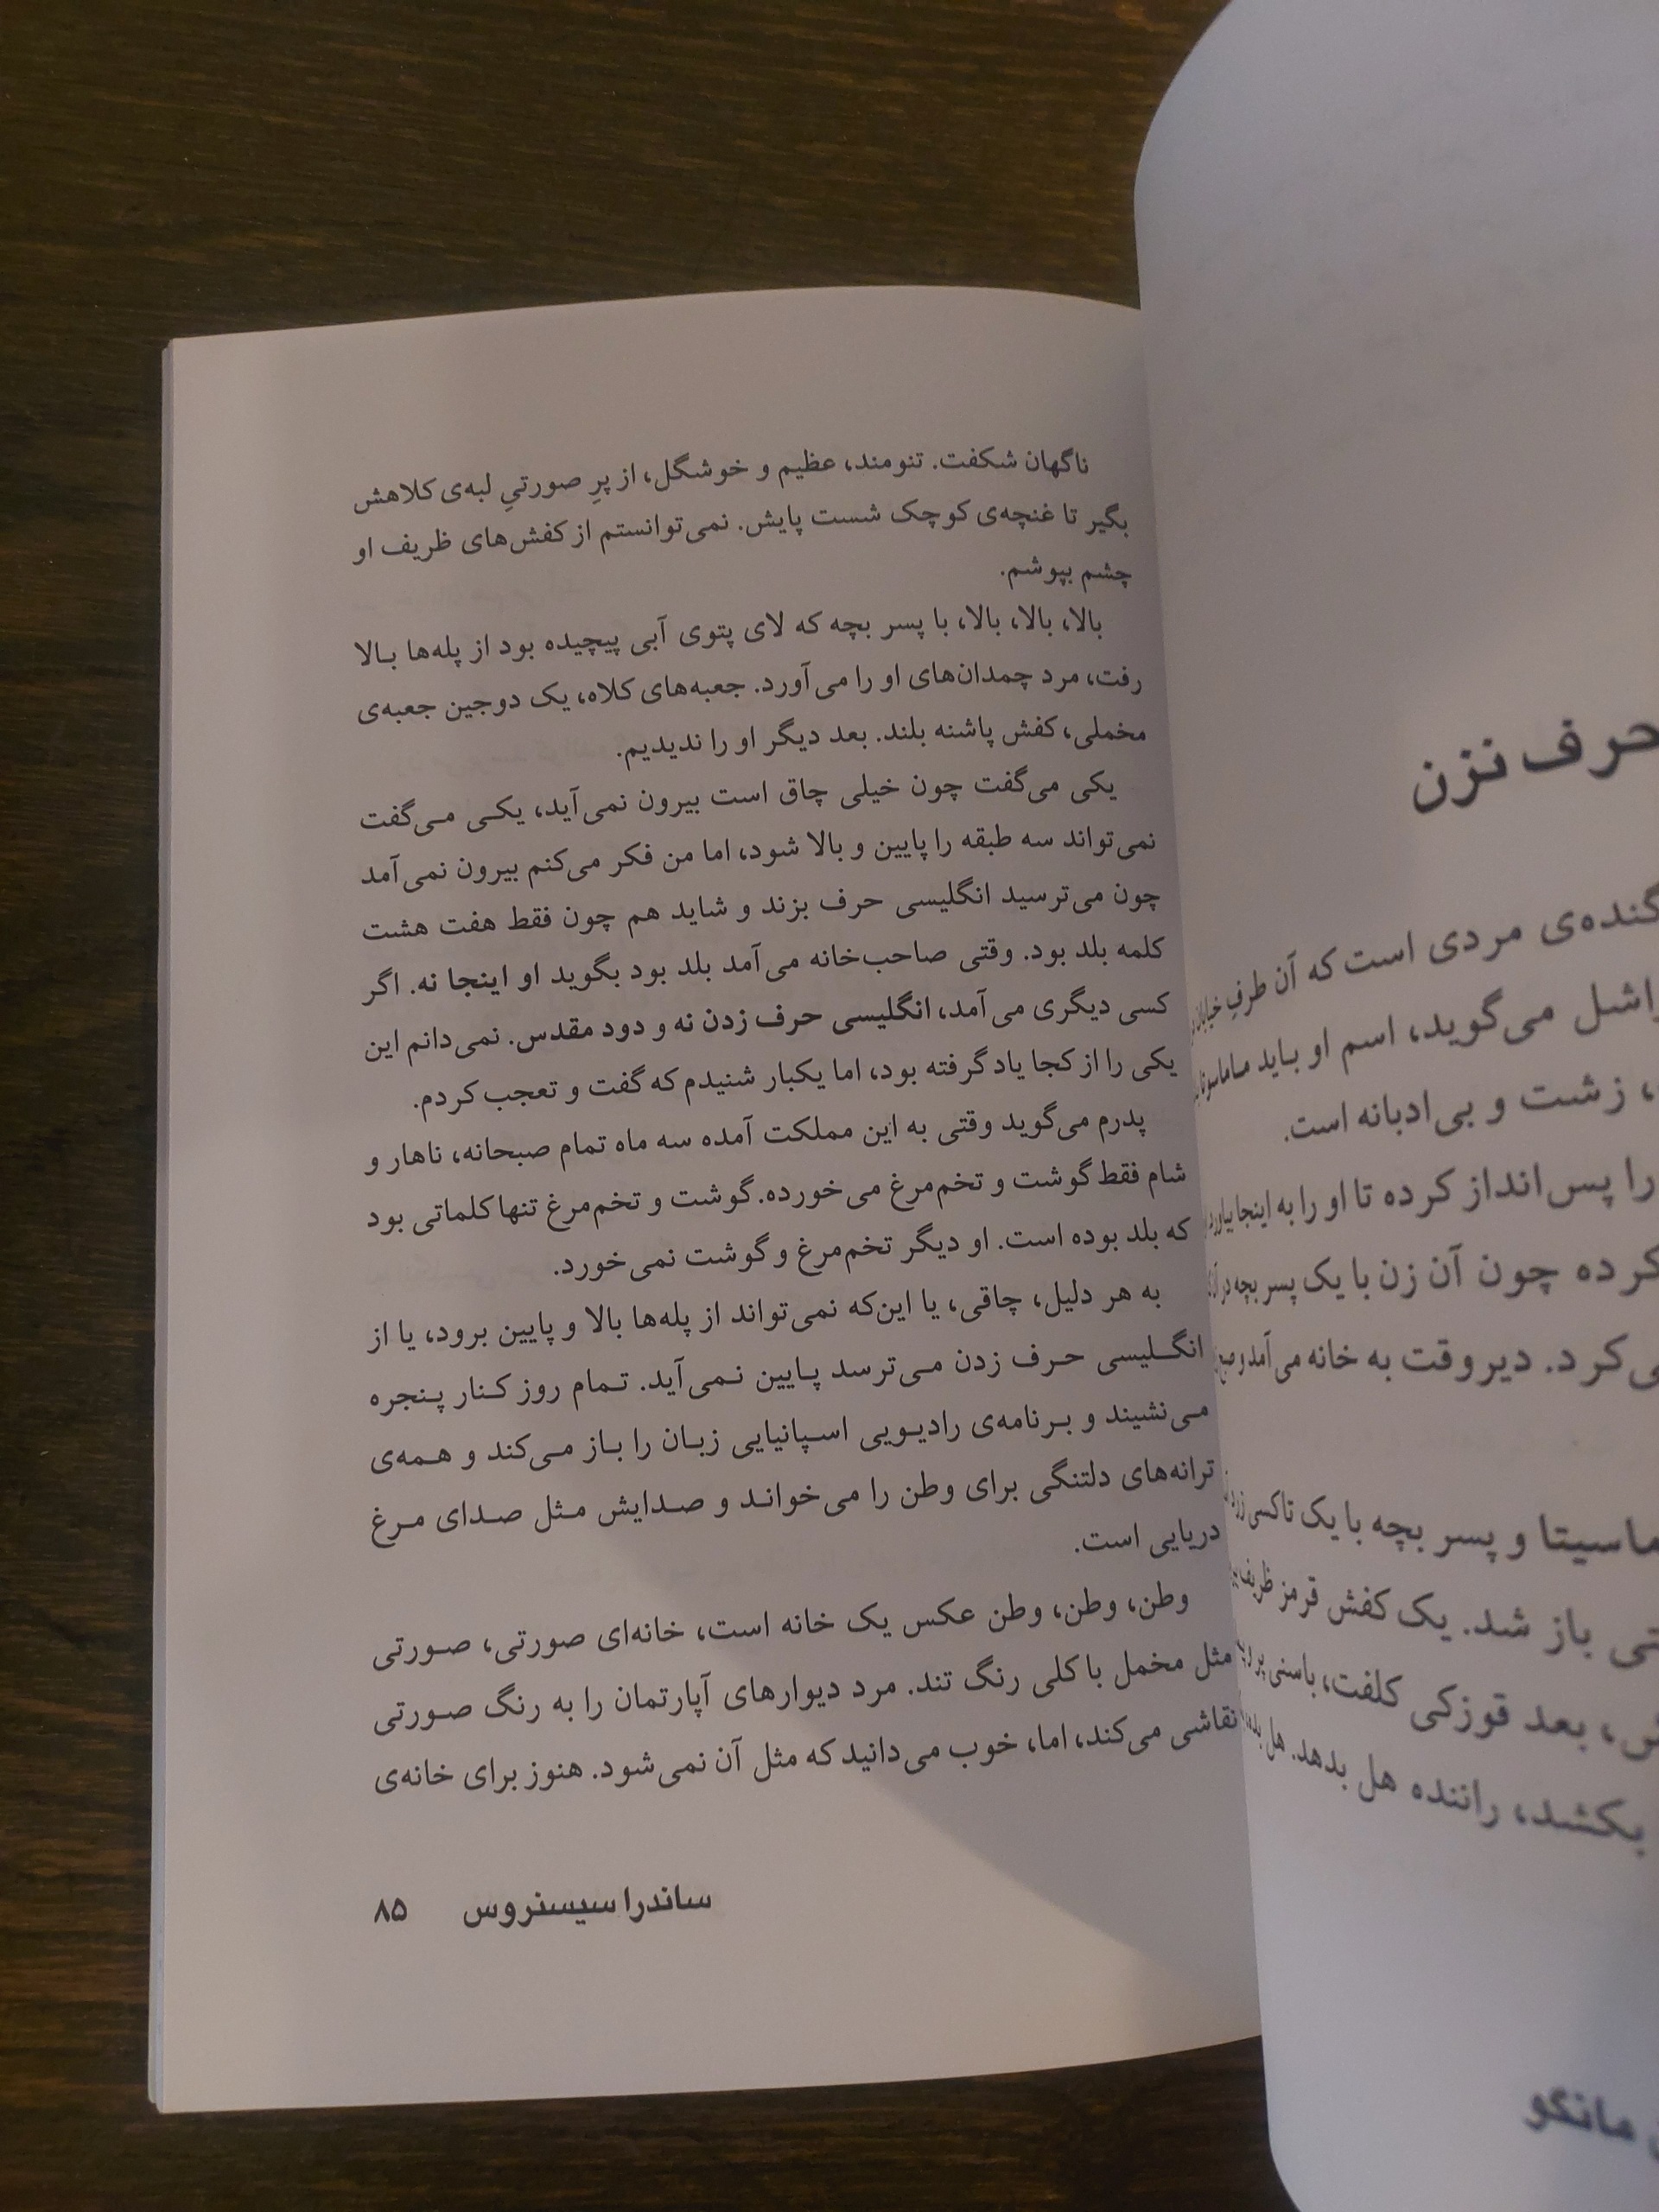 حرف نزن
گنده‌ی مردی است که آن طرفِ خیابان
می‌گوید، اسم او باید ماماسوتا
زشت و بی‌ادبانه است.
را پس‌انداز کرده تا او را به اینجا بیاورد
کرده چون آن زن با یک پسر بچه در آن
دیروقت به خانه می‌آمد و صبح
و پسر بچه با یک تاکسی زرد
باز شد. یک کفش قرمز ظریف
بعد قوزکی کلفت، باسنی پر
بکشد، راننده هل بدهد. هل بده
مانگو
ناگهان شکفت. تنومند، عظیم و خوشگل، از پرِ صورتیِ لبه‌ی کلاهش
بگیر تا غنچه‌ی کوچک شست پایش. نمی‌توانستم از کفش‌های ظریف او
چشم بپوشم.
بالا، بالا، بالا، با پسر بچه که لای پتوی آبی پیچیده بود از پله‌ها بالا
رفت، مرد چمدان‌های او را می‌آورد. جعبه‌های کلاه، یک دوجین جعبه‌ی
مخملی، کفش پاشنه بلند. بعد دیگر او را ندیدیم.
یکی می‌گفت چون خیلی چاق است بیرون نمی‌آید، یکی می‌گفت
نمی‌تواند سه طبقه را پایین و بالا شود، اما من فکر می‌کنم بیرون نمی‌آمد
چون می‌ترسید انگلیسی حرف بزند و شاید هم چون فقط هفت هشت
کلمه بلد بود. وقتی صاحب‌خانه می‌آمد بلد بود بگوید او اینجا نه. اگر
کسی دیگری می‌آمد، انگلیسی حرف زدن نه و دود مقدس. نمی‌دانم این
یکی را از کجا یاد گرفته بود، اما یکبار شنیدم که گفت و تعجب کردم.
پدرم می‌گوید وقتی به این مملکت آمده سه ماه تمام صبحانه، ناهار و
شام فقط گوشت و تخم‌مرغ می‌خورده. گوشت و تخم‌مرغ تنها کلماتی بود
که بلد بوده است. او دیگر تخم‌مرغ و گوشت نمی‌خورد.
به هر دلیل، چاقی، یا این‌که نمی‌تواند از پله‌ها بالا و پایین برود، یا از
انگلیسی حرف زدن می‌ترسد پایین نمی‌آید. تمام روز کنار پنجره
می‌نشیند و برنامه‌ی رادیویی اسپانیایی زبان را باز می‌کند و همه‌ی
ترانه‌های دلتنگی برای وطن را می‌خواند و صدایش مثل صدای مرغ
دریایی است.
وطن، وطن، وطن عکس یک خانه است، خانه‌ای صورتی، صورتی
مثل مخمل با کلی رنگ تند. مرد دیوارهای آپارتمان را به رنگ صورتی
نقاشی می‌کند، اما، خوب می‌دانید که مثل آن نمی‌شود. هنوز برای خانه‌ی
ساندرا سیسنروس ۸۵